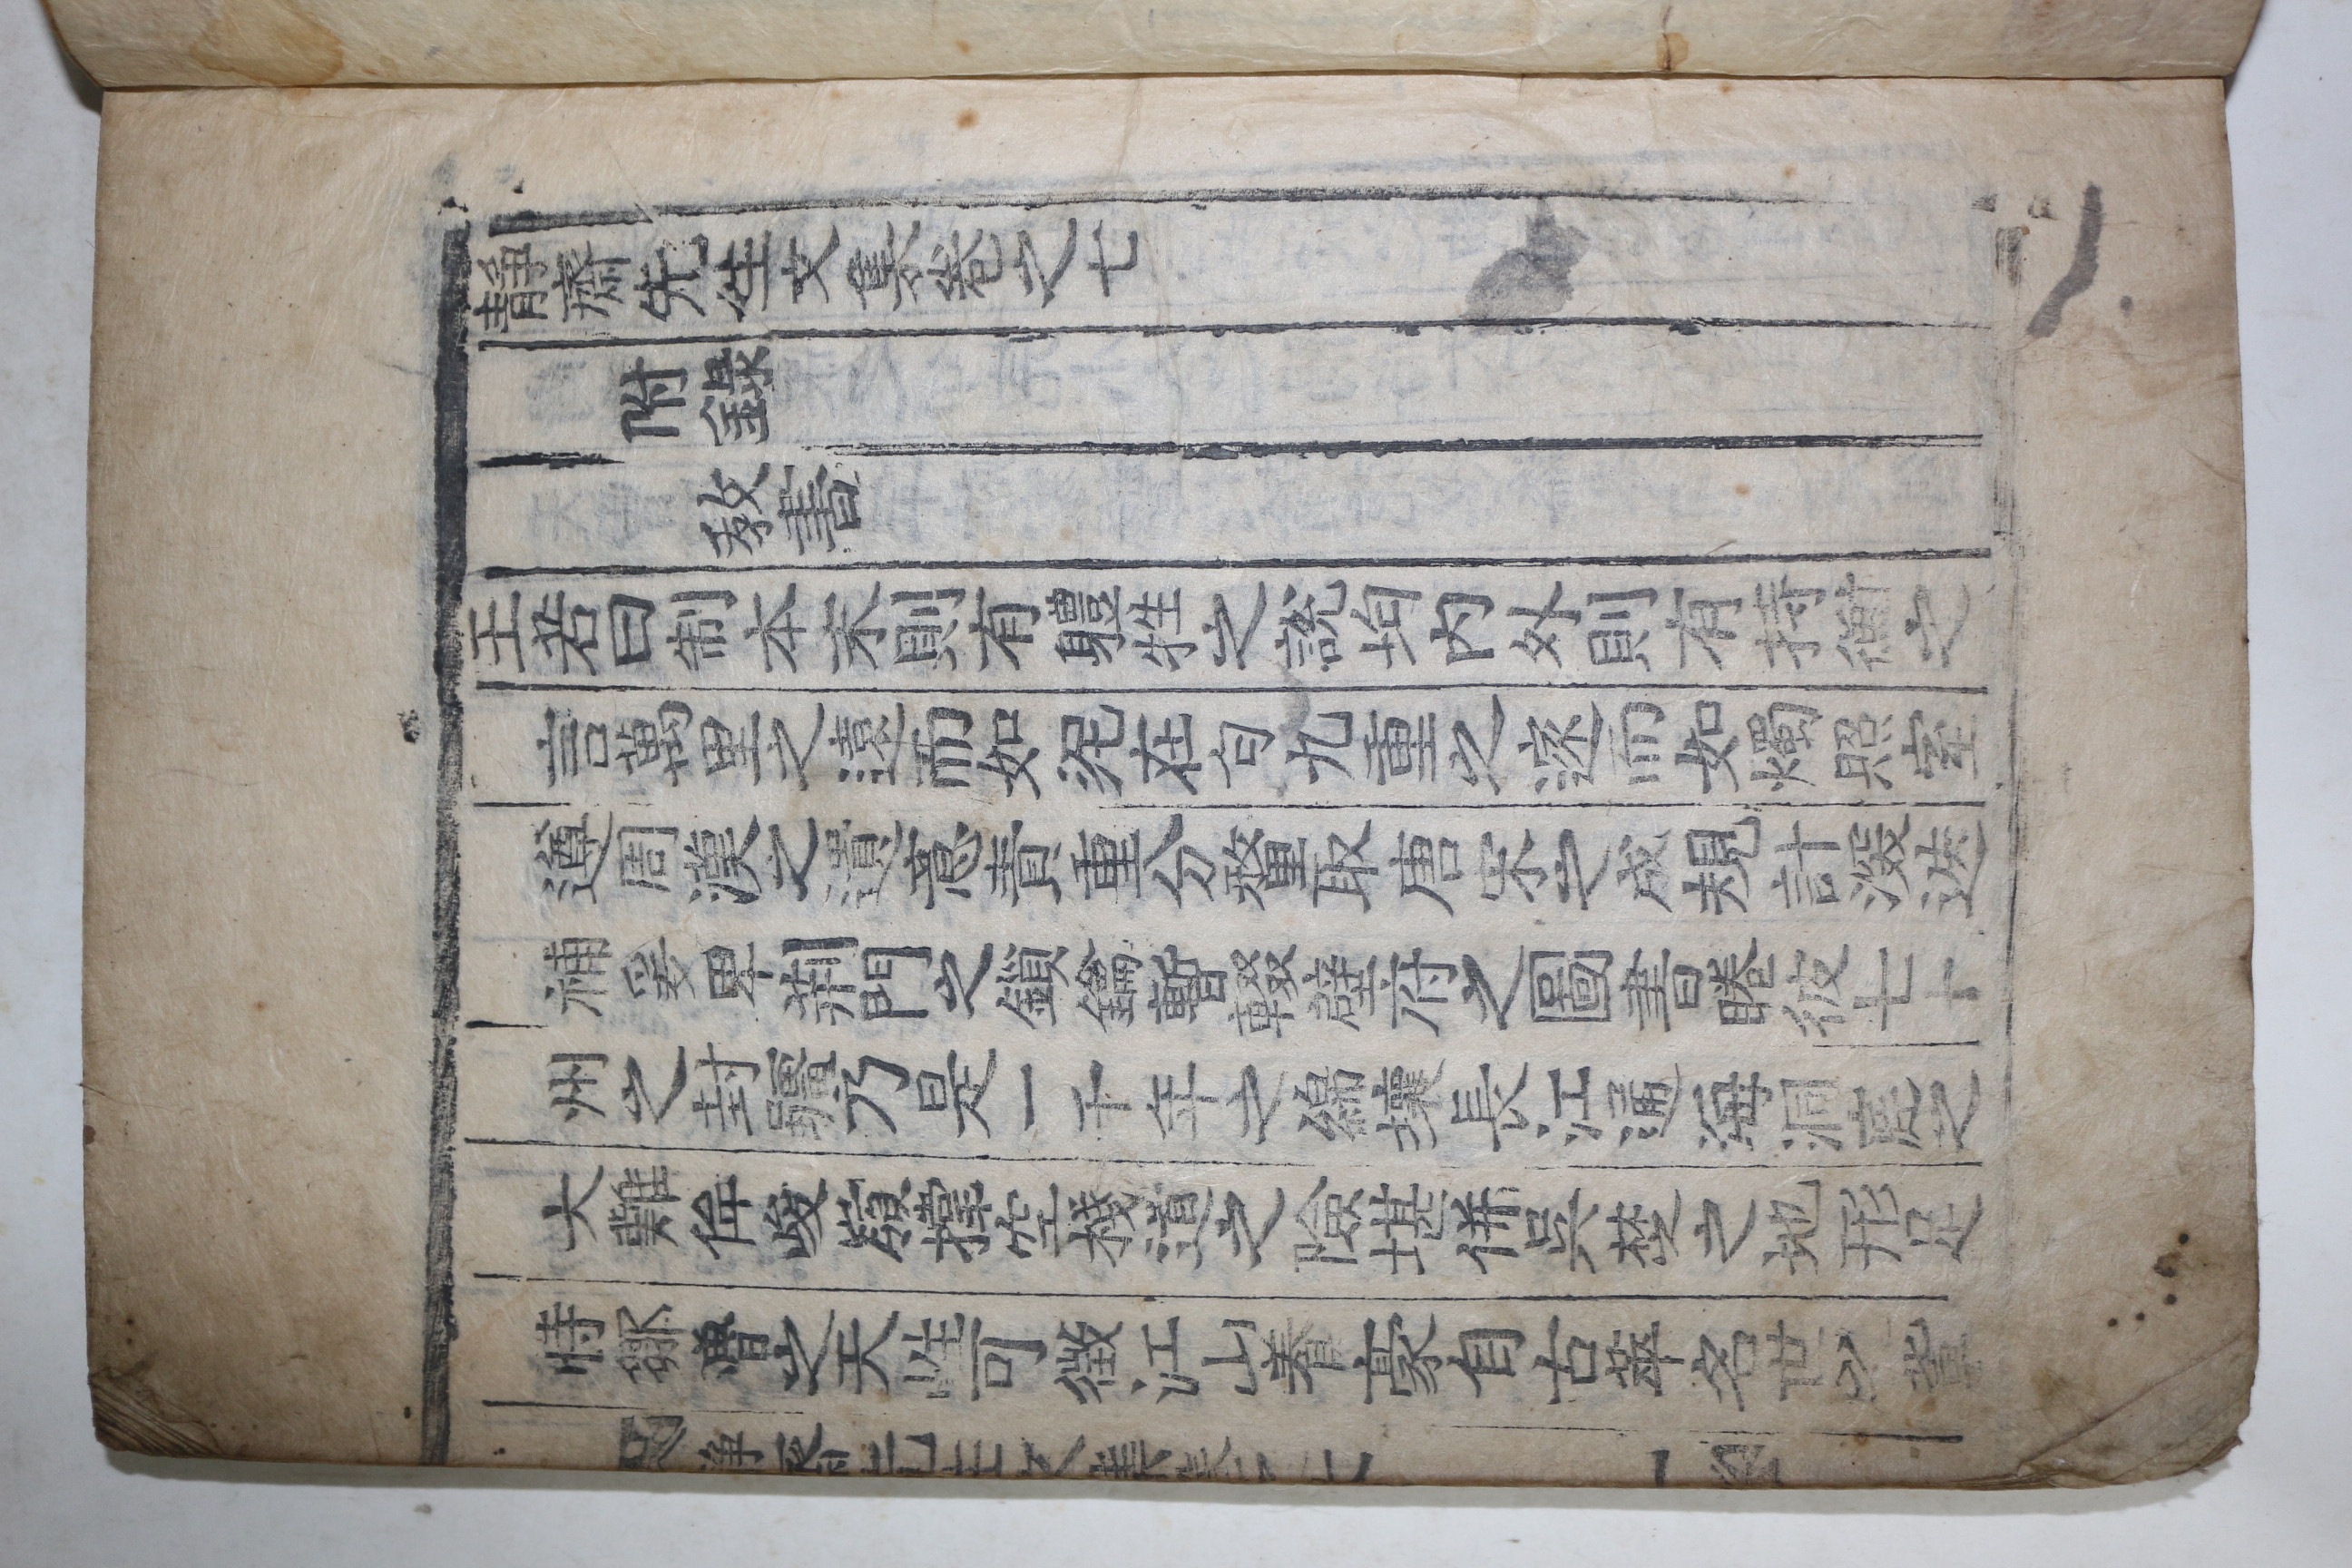 靜齋先生文集卷之七
附錄
敎書
王若曰制本末則有軆牲之說均內外則有持衡之
言萬里之遠而如泥在匀九重之邃而如燭照室
遵周漢之遺意責重分釐取唐宋之成規計深迭
補爰畀荊門之鎖鑰暫輟壁府之圖書睠彼七十
州之封疆乃是一千年之綿壤長江通海洞庭之
大難侔峻嶺撑空棧道之險堪倂吳楚之地形足
恃鄒魯之天性可徵江山養豪自古萃名世之
靜齋先生文集卷之七